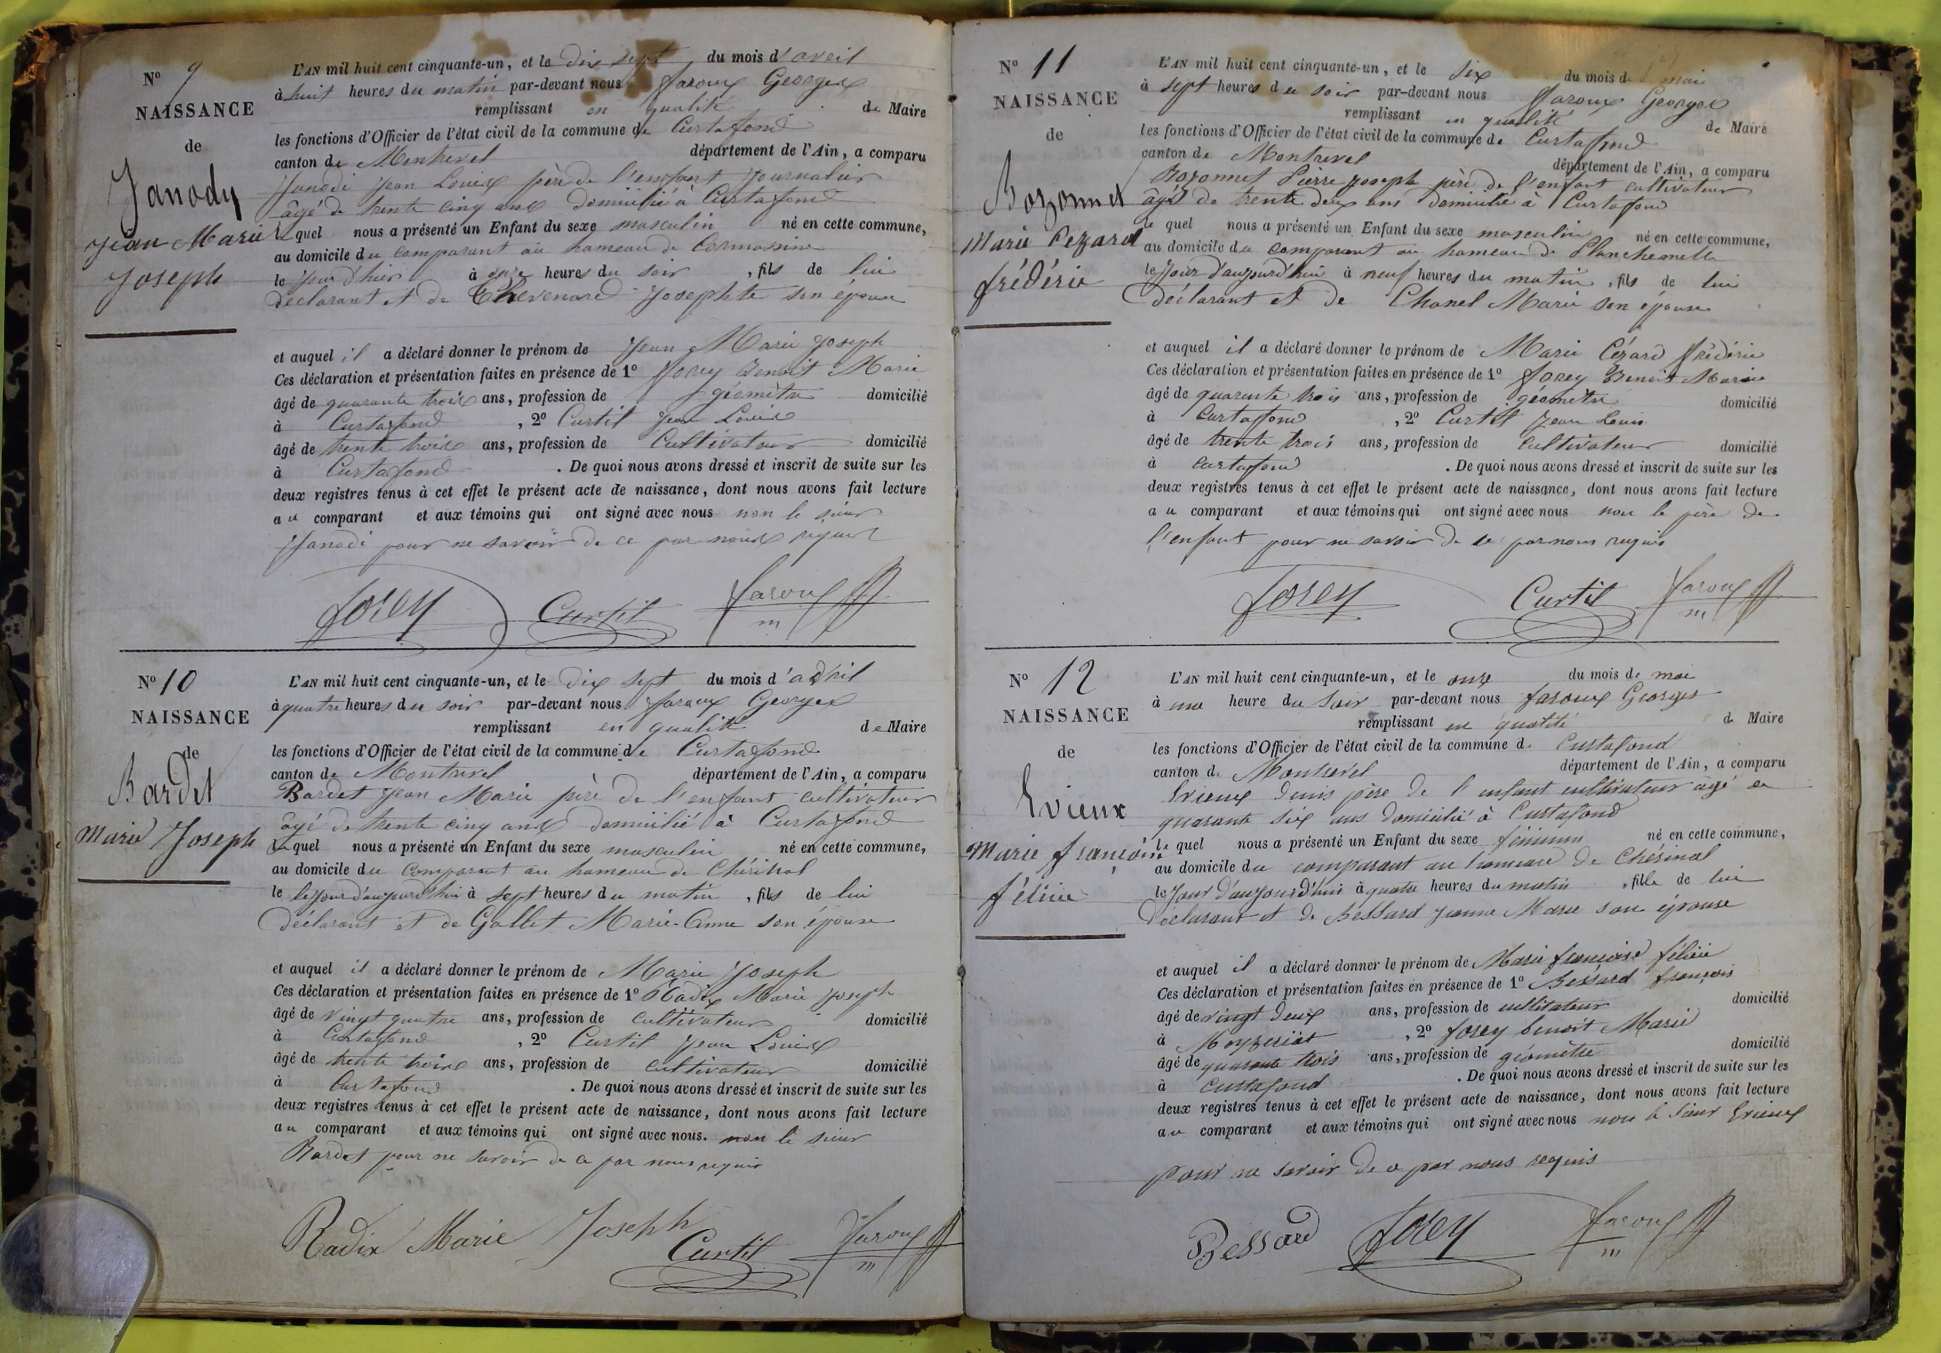 N° 9
NAISSANCE
de
Janody
Jean Marie
Joseph
L'AN mil huit cent cinquante-un, et le dix sept du mois d'avril
à huit heures du matin par-devant nous faroux Georges
remplissant en qualité de Maire
les fonctions d'Officier de l'état civil de la commune de Curtafond
canton de Montrevel département de l'Ain, a comparu
Janodi Jean Louis père de l'enfant journalier
âgé de trente cinq ans domicilié à Curtafond
le quel nous a présenté un Enfant du sexe masculin né en cette commune,
au domicile du comparant au hameau de
le jour d'hier à onze heures du soir, fils de lui
déclarant et de Thevenard Josephte son épouse
et auquel il a déclaré donner le prénom de Jean Marie Joseph
Ces déclaration et présentation faites en présence de 1° forey Benoit Marie
âgé de quarante trois ans, profession de géomètre domicilié
à Curtafond, 2° Curtil Jean Louis
âgé de trente trois ans, profession de Cultivateur domicilié
à Curtafond. De quoi nous avons dressé et inscrit de suite sur les
deux registres tenus à cet effet le présent acte de naissance, dont nous avons fait lecture
au comparant et aux témoins qui ont signé avec nous non le sieur
Janodi pour ne savoir de ce par nous requis
forey Curtil faroux
m
N° 10
NAISSANCE
de
Bardet
Marie Joseph
L'AN mil huit cent cinquante-un, et le dix sept du mois d'avril
à quatre heures du soir par-devant nous faroux Georges
remplissant en qualité de Maire
les fonctions d'Officier de l'état civil de la commune de Curtafond
canton de Montrevel département de l'Ain, a comparu
Bardet Jean Marie père de l'enfant cultivateur
âgé de trente cinq ans domicilié à Curtafond
Le quel nous a présenté un Enfant du sexe masculin né en cette commune,
au domicile du comparant au hameau de Chérinal
le le jour d'aujourd'hui à sept heures du matin, fils de lui
déclarant et de Gallet Marie-Anne son épouse
et auquel il a déclaré donner le prénom de Marie Joseph
Ces déclaration et présentation faites en présence de 1° Radix Marie Joseph
âgé de vingt quatre ans, profession de cultivateur domicilié
à Curtafond, 2° Curtil Jean Louis
âgé de trente trois ans, profession de cultivateur domicilié
à Curtafond. De quoi nous avons dressé et inscrit de suite sur les
deux registres tenus à cet effet le présent acte de naissance, dont nous avons fait lecture
au comparant et aux témoins qui ont signé avec nous. non le sieur
Bardet pour ne savoir de ce par nous requis
Radix Marie Joseph Curtil faroux
m
N° 11
NAISSANCE
de
Bozonnet
Marie Cézard
frédéric
L'AN mil huit cent cinquante-un, et le six du mois de mai
à sept heures du soir par-devant nous faroux Georges
remplissant en qualité de Maire
les fonctions d'Officier de l'état civil de la commune de Curtafond
canton de Montrevel département de l'Ain, a comparu
Bozonnet Pierre Joseph père de l'enfant cultivateur
âgé de trente deux ans domicilié à Curtafond
le quel nous a présenté un Enfant du sexe masculin né en cette commune,
au domicile du comparant au hameau de
le Jour d'aujourd'hui à neuf heures du matin, fils de lui
déclarant et de Chanel Marie son épouse
et auquel il a déclaré donner le prénom de Marie Cézard frédéric
Ces déclaration et présentation faites en présence de 1° forey Benoit Marie
âgé de quarante trois ans, profession de géomètre domicilié
à Curtafond, 2° Curtil Jean Louis
âgé de trente trois ans, profession de cultivateur domicilié
à curtafond. De quoi nous avons dressé et inscrit de suite sur les
deux registres tenus à cet effet le présent acte de naissance, dont nous avons fait lecture
au comparant et aux témoins qui ont signé avec nous non le père de
l'enfant pour ne savoir de ce par nous requis
forey Curtil faroux
m
N° 12
NAISSANCE
de
Evieux
Marie françoise
félicie
L'AN mil huit cent cinquante-un, et le onze du mois de mai
à une heure du soir par-devant nous faroux Georges
remplissant en qualité de Maire
les fonctions d'Officier de l'état civil de la commune de Curtafond
canton de Montrevel département de l'Ain, a comparu
Evieux Denis père de l'enfant cultivateur âgé de
quarante six ans domicilié à Curtafond
le quel nous a présenté un Enfant du sexe féminin né en cette commune,
au domicile du comparant au hameau de Chérinal
le Jour d'aujourd'hui à quatre heures du matin, fille de lui
déclarant et de Bessard Jeanne Marie son épouse
et auquel il a déclaré donner le prénom de Marie françoise félicie
Ces déclaration et présentation faites en présence de 1° Bessard françois
âgé de vingt deux ans, profession de cultivateur domicilié
à, 2° forey benoit Marie
âgé de quarante trois ans, profession de géomètre domicilié
à Curtafond. De quoi nous avons dressé et inscrit de suite sur les
deux registres tenus à cet effet le présent acte de naissance, dont nous avons fait lecture
au comparant et aux témoins qui ont signé avec nous non le sieur Evieux
pour ne savoir de ce par nous requis
Bessard forey faroux
m